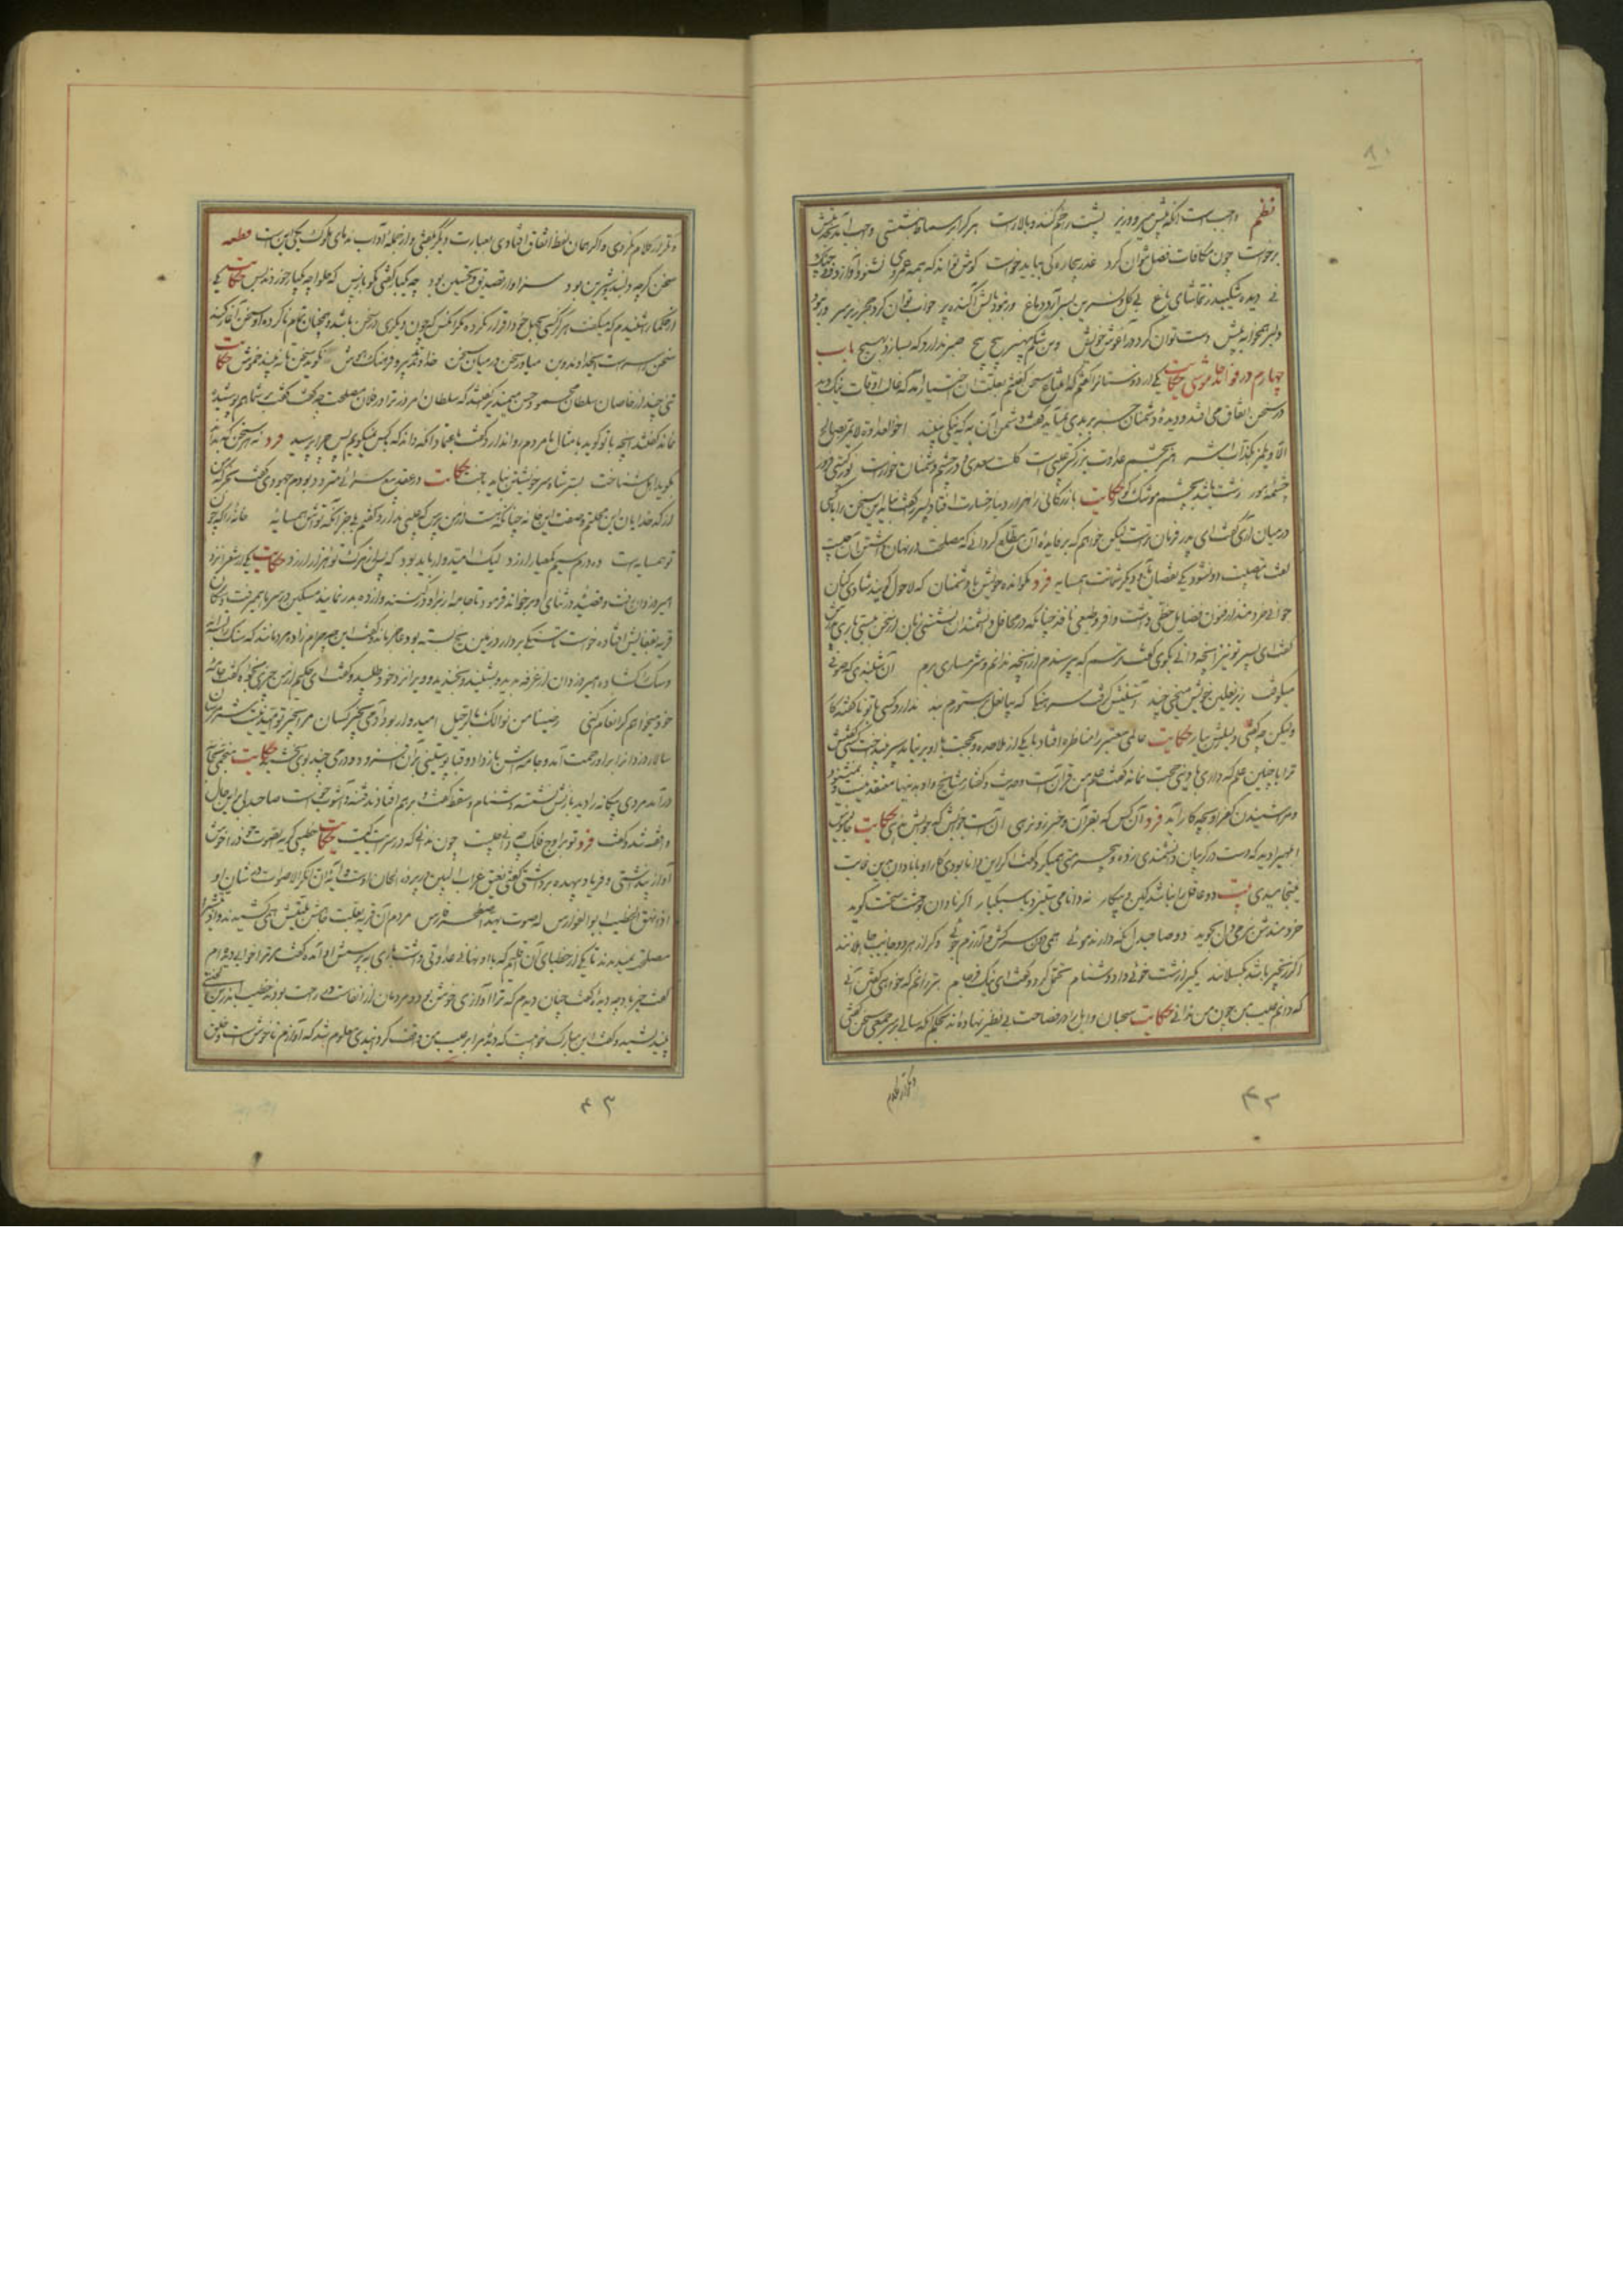 نظم واجب است آنکه پس میرود و زیر پشت راخم کند و بالا راست هر کرا بر سماط بنشستی واجب آمد بخدمتش
برخاست چون مکافات فضل نتوان کرد عذر بیچارگی بباید خواست گوش تواند که همه عمر وی نشنود آواز دف و چنگ و
نی دیده شکیبد ز تماشای باغ بی گل و نسرین بسر آرد دماغ ور نبود بالش آکنده پر خواب توان کرد حجر زیر سر ور نبود
دلبر همخوابه پیش دست توان کرد در آغوش خویش وین شکم بی هنر پیچ پیچ صبر ندارد که بسازد بهیچ باب
چهارم در فواید خاموشی حکایت یکی را از دوستانرا گفتم که امتناع سخن گفتنم بعلت آن اختیار آمد که غالب اوقات نیک و بد
در سخن اتفاق می افتد و دیده دشمنان جز بر بدی نمیآید گفت دشمن آن به که نیکی نبیند اخو العداوة لا یمر بصالح
الا و یلمزه بکذاب اشر هنر بچشم عداوت بزرگتر عیبی است گلست سعدی و در چشم دشمنان خارست نور گیتی فروز
چشمه هور زشت باشد بچشم موشک کور حکایت بازرگانی را هزار دینار خسارت افتاد پسر را گفت نباید این سخن را با کسی
در میان آری گفت ای پدر فرمان تراست لیکن خواهم که بر فایده آن مطلع گردانی که مصلحت در نهان داشتن آن چیست
گفت تا مصیبت دو نشود یکی نقصان مایه و دیگر شماتت همسایه فرد مگو انده خویش با دشمنان که لاحول گویند شادی کنان
جوانی خردمند از فنون فضایل حظی داشت وافر و طبعی نافذ چنانکه در محافل دانشمندان نشستی زبان از سخن ببستی باری پدرش
گفت ای پسر تو نیز آنچه دانی بگوی گفت ترسم که بپرسندم از آنچه ندانم و شرمساری برم آن شنیدی که صوفی
میکوفت زیر نعلین خویش میخی چند آستینش گرفت سرهنگی که بیا نعل بر ستورم بند ندارد کسی با تو ناگفته کار
ولیکن چو گفتی دلیلش بیار حکایت عالمی معتبر را مناظره افتاد با یکی از ملاحده و بحجت با او بر نیامد سپر بینداخت کسی گفتش
ترا با چنین علم که داری با بیدینی حجت نماند گفت علم من قرآنست و حدیث و گفتار مشایخ و او بدینها معتقد نیست و نمیشنود
و مرا شنیدن کفر او بچه کار آید فرد آن کس که بقرآن و خبر زو نرهی آن است جوابش که جوابش ندهی حکایت جالینوس
ابلهی را دید که دست در گریبان دانشمندی زده و بیحرمتی همیکرد گفت اگر این دانا بودی کار او با نادان بدین غایت
نینجامیدی بیت دو عاقل را نباشد کین و پیکار نه دانایی ستیزد با سبکبار اگر نادان بوحشت سخت گوید
خردمندش بنرمی دل بجوید دو صاحبدل نگه دارند موئی همیدون سرکش و آزرم جوئی و گر از هر دو جانب جاهلانند
اگر زنجیر باشد بگسلانند یکیرا زشت خوئی داد دشنام تحمل کرد و گفت ای نیک فرجام بتر زانم که خواهی گفتن آنی
که دانم عیب من چون من ندانی حکایت سحبان وائل را در فصاحت بی نظیر نهاده اند بحکم آنکه سالی بر سر جمعی سخن گفتی
و مکرر کلام
و مکرر کلام نکردی و اگر همان لفظ اتفاق افتادی بعبارت دیگر بگفتی و از جمله آداب ندمای ملوک یکی این است قطعه
سخن گرچه دلبند و شیرین بود سزاوار تصدیق و تحسین بود چو یکبار گفتی مگو باز پس که حلوا چو یکبار خوردند بس حکایت یکی
از حکما را شنیدم که میگفت هرگز کسی بجهل خود اقرار نکرده مگر آنکس که چون دیگری در سخن باشد و همچنان تمام ناکرده او سخن آغاز کند
سخن را سر است ای خداوند و بن میاور سخن در میان سخن خداوند تدبیر و فرهنگ و هوش نگوید سخن تا نبیند خموش حکایت
تنی چند از خاصان سلطان محمود حسن میمندی را گفتند که سلطان امروز ترا در فلان مصلحت چه گفت گفت بر شما هم پوشیده
نماند گفتند آنچه با تو گوید با امثال ما مردم روا ندارد گفت باعتماد آنکه داند که بکس نمیگویم پس چرا پرسید فرد نه هر سخن که بداند
بگوید اهل شناخت بسر شاه سر خویشتن نباید باخت حکایت در عقد بیع سرائی متردد بودم جهودی گفت بخر که من
از کدخدایان این محلتم وصف این خانه چنانکه هست از من پرس که عیبی ندارد گفتم بجز آنکه تو اش همسایه خانه را که چو
تو همسایه است ده درم سیم کم عیار ارزد لیک امیدوار باید بود که پس از مرگ تو هزار ارزد حکایت یکی از شعرا نزد
امیر دزدان رفت و قصیده در ثنای او برخواند فرمود تا جامه از او برکنند و از ده بدر نمایند مسکین در سرما همیرفت و سگان
قریه بقفایش افتاده خواست تا سنگی بردارد زمین یخ بسته بود عاجز ماند گفت این چه حرام زاده مردمانند که سنگ را بسته
و سگ را گشاده امیر دزدان از غرفه بدید و بشنید و بخندید و ویرا نزد خود طلبید و گفت ای حکیم از من چیزی بخواه گفت جامه
خود میخواهم گر انعام کنی رضینا من نوالک بالرحیل امیدوار بود آدمی بخیر کسان مرا بخیر تو امید نیست شر مرسان
سالار دزدانرا بر او رحمت آمد و جامه اش باز داد و قبا پوستینی بر آن فزود و درمی چند بوی بخشید حکایت منجمی بخانه
درآمد مردی بیگانه را دید با زنش نشسته دشنام و سقط گفت و برهم افتادند فتنه و آشوب خواست صاحبدلی بر این حال
واقف شد و گفت فرد تو بر اوج فلک چه دانی چیست چون ندانی که در سرایت کیست حکایت خطیبی کریه الصوت خود را خوش
آواز پنداشتی و فریاد بیهده برداشتی گفتی نعیق غراب البین در پرده الحان اوست و آیه ان انکر الاصوات در شان او
اذا نهق الخطیب ابو الفوارس له صوت یهد اصطخر فارس مردم آن قریه بعلت جاهش بلیتش همی کشیدند و اذیتش را
مصلحت نمیدیدند تا یکی از خطبای آن اقلیم که با او نهانی عداوتی داشت باری به پرسش او آمده گفت مر ترا خوابی دیده ام
گفت خیر باد چه دیده گفت چنان دیدم که ترا آوازی خوش بود و مردمان از انفاست در راحت بودند خطیب اندرین لختی
بیندیشید و گفت این مبارک خوابیست که دیده مرا بر عیب من واقف گردانیدی معلوم شد که آوازم ناخوش است و خلق
۴۲
۴۳